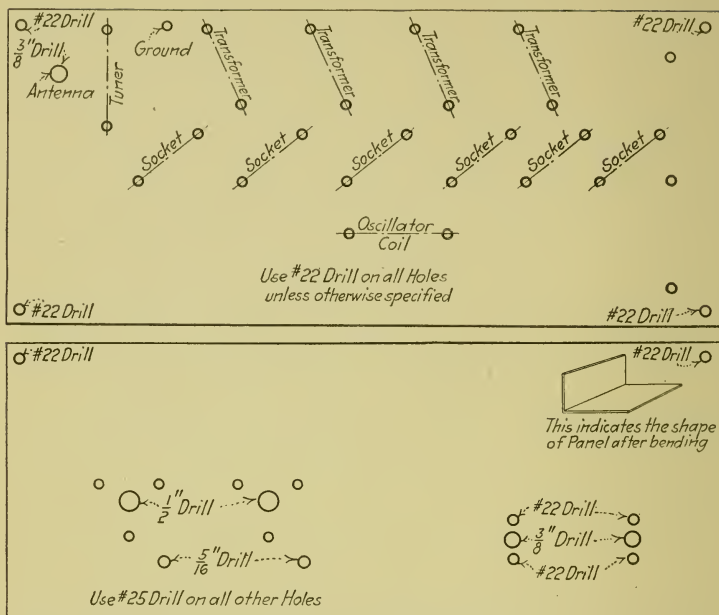 #22 Drill
#22 Drill
3/8" Drill
Antenna
Tuner
Ground
Transformer
Transformer
Transformer
Transformer
Socket
Socket
Socket
Socket
Socket
Socket
Oscillator
Coil
Use #22 Drill on all Holes
unless otherwise specified
#22 Drill
#22 Drill
#22 Drill
#22 Drill
This indicates the shape
of Panel after bending
1/2" Drill
#22 Drill
3/8" Drill
5/16" Drill
#22 Drill
Use #25 Drill on all other Holes